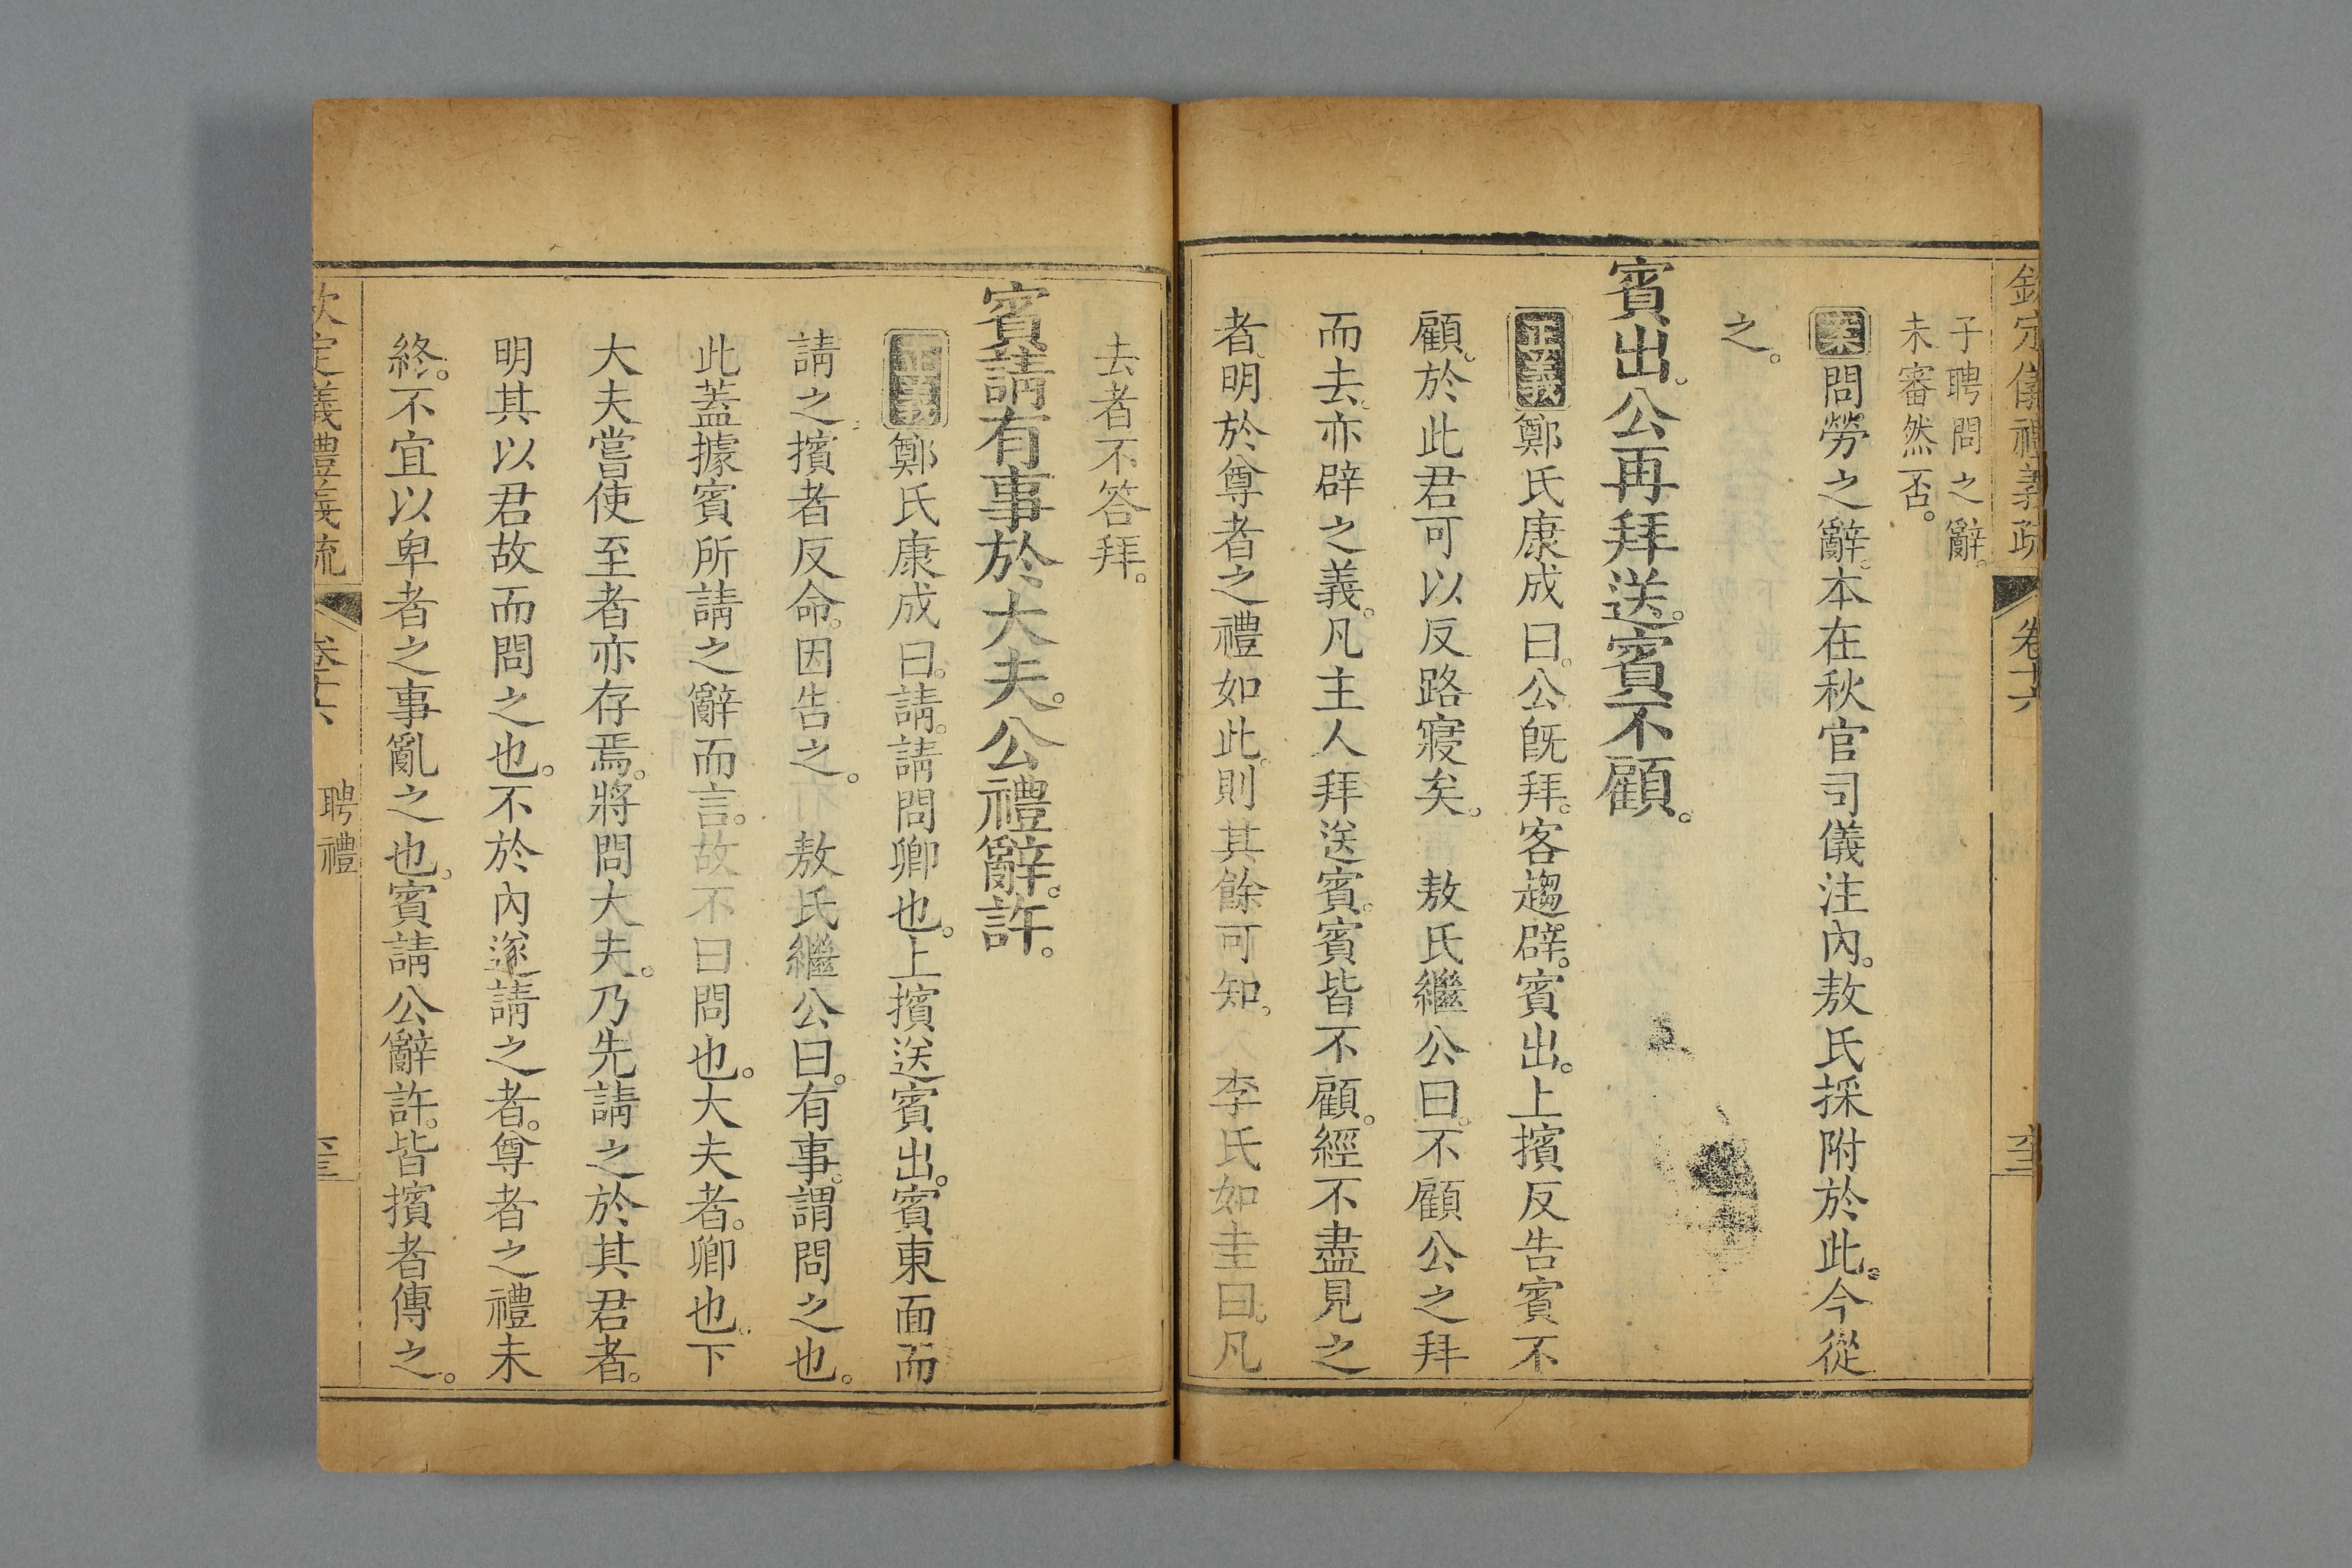 欽定儀禮義疏 卷十六
子聘問之辭。
未審然否。
案問勞之辭。本在秋官司儀注內。敖氏採附於此。今從
之。
賓出。公再拜送。賓不顧。
正義鄭氏康成曰。公既拜。客趨辟。賓出。上擯反告賓不
顧。於此君可以反路寢矣。 敖氏繼公曰。不顧公之拜
而去。亦辟之義。凡主人拜送賓。賓皆不顧。經不盡見之
者。明於尊者之禮如此。則其餘可知。 李氏如圭曰。凡
去者不答拜。
賓請有事於大夫。公禮辭。許。
正義鄭氏康成曰。請。請問卿也。上擯送賓出。賓東面而
請之。擯者反命。因告之。 敖氏繼公曰。有事。謂問之也。
此蓋據賓所請之辭而言。故不曰問也。大夫者。卿也。下
大夫嘗使至者亦存焉。將問大夫。乃先請之於其君者。
明其以君故而問之也。不於內遂請之者。尊者之禮未
終。不宜以卑者之事亂之也。賓請公辭許。皆擯者傳之。
欽定儀禮義疏 卷十六 聘禮